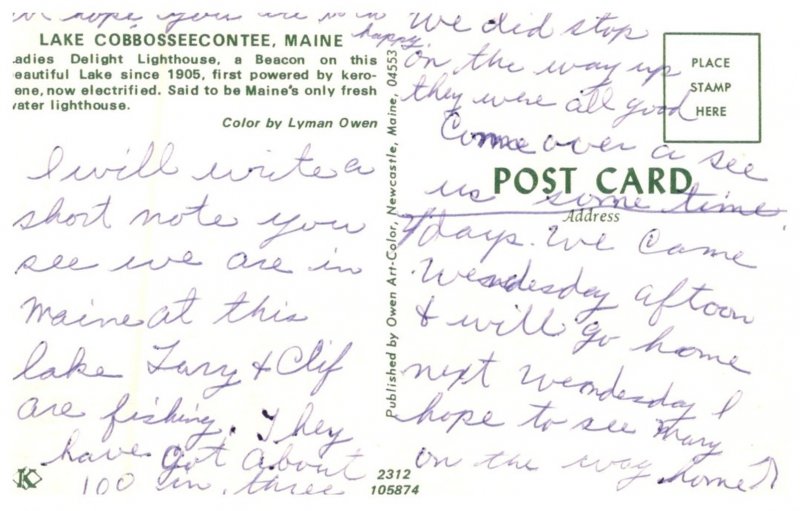 hope you are
happy.
LAKE COBBOSSEECONTEE, MAINE
adies Delight Lighthouse, a Beacon on this
eautiful Lake since 1905, first powered by kero-
ene, now electrified. Said to be Maine's only fresh
ater lighthouse.
Color by Lyman Owen
I will write a
short note you
see we are in
Maine at this
lake Larry & Clif
are fishing. They
have got about
100 in, three
Published by Owen Art-Color, Newcastle, Maine, 04553
2312
105874
PLACE
STAMP
HERE
POST CARD
Address
days. We came
Wendesday aftoon
& will go home
next Wendesday I
hope to see Mary
on the way home
We did stop
on the way up
they were all good
Come over a see
us some time